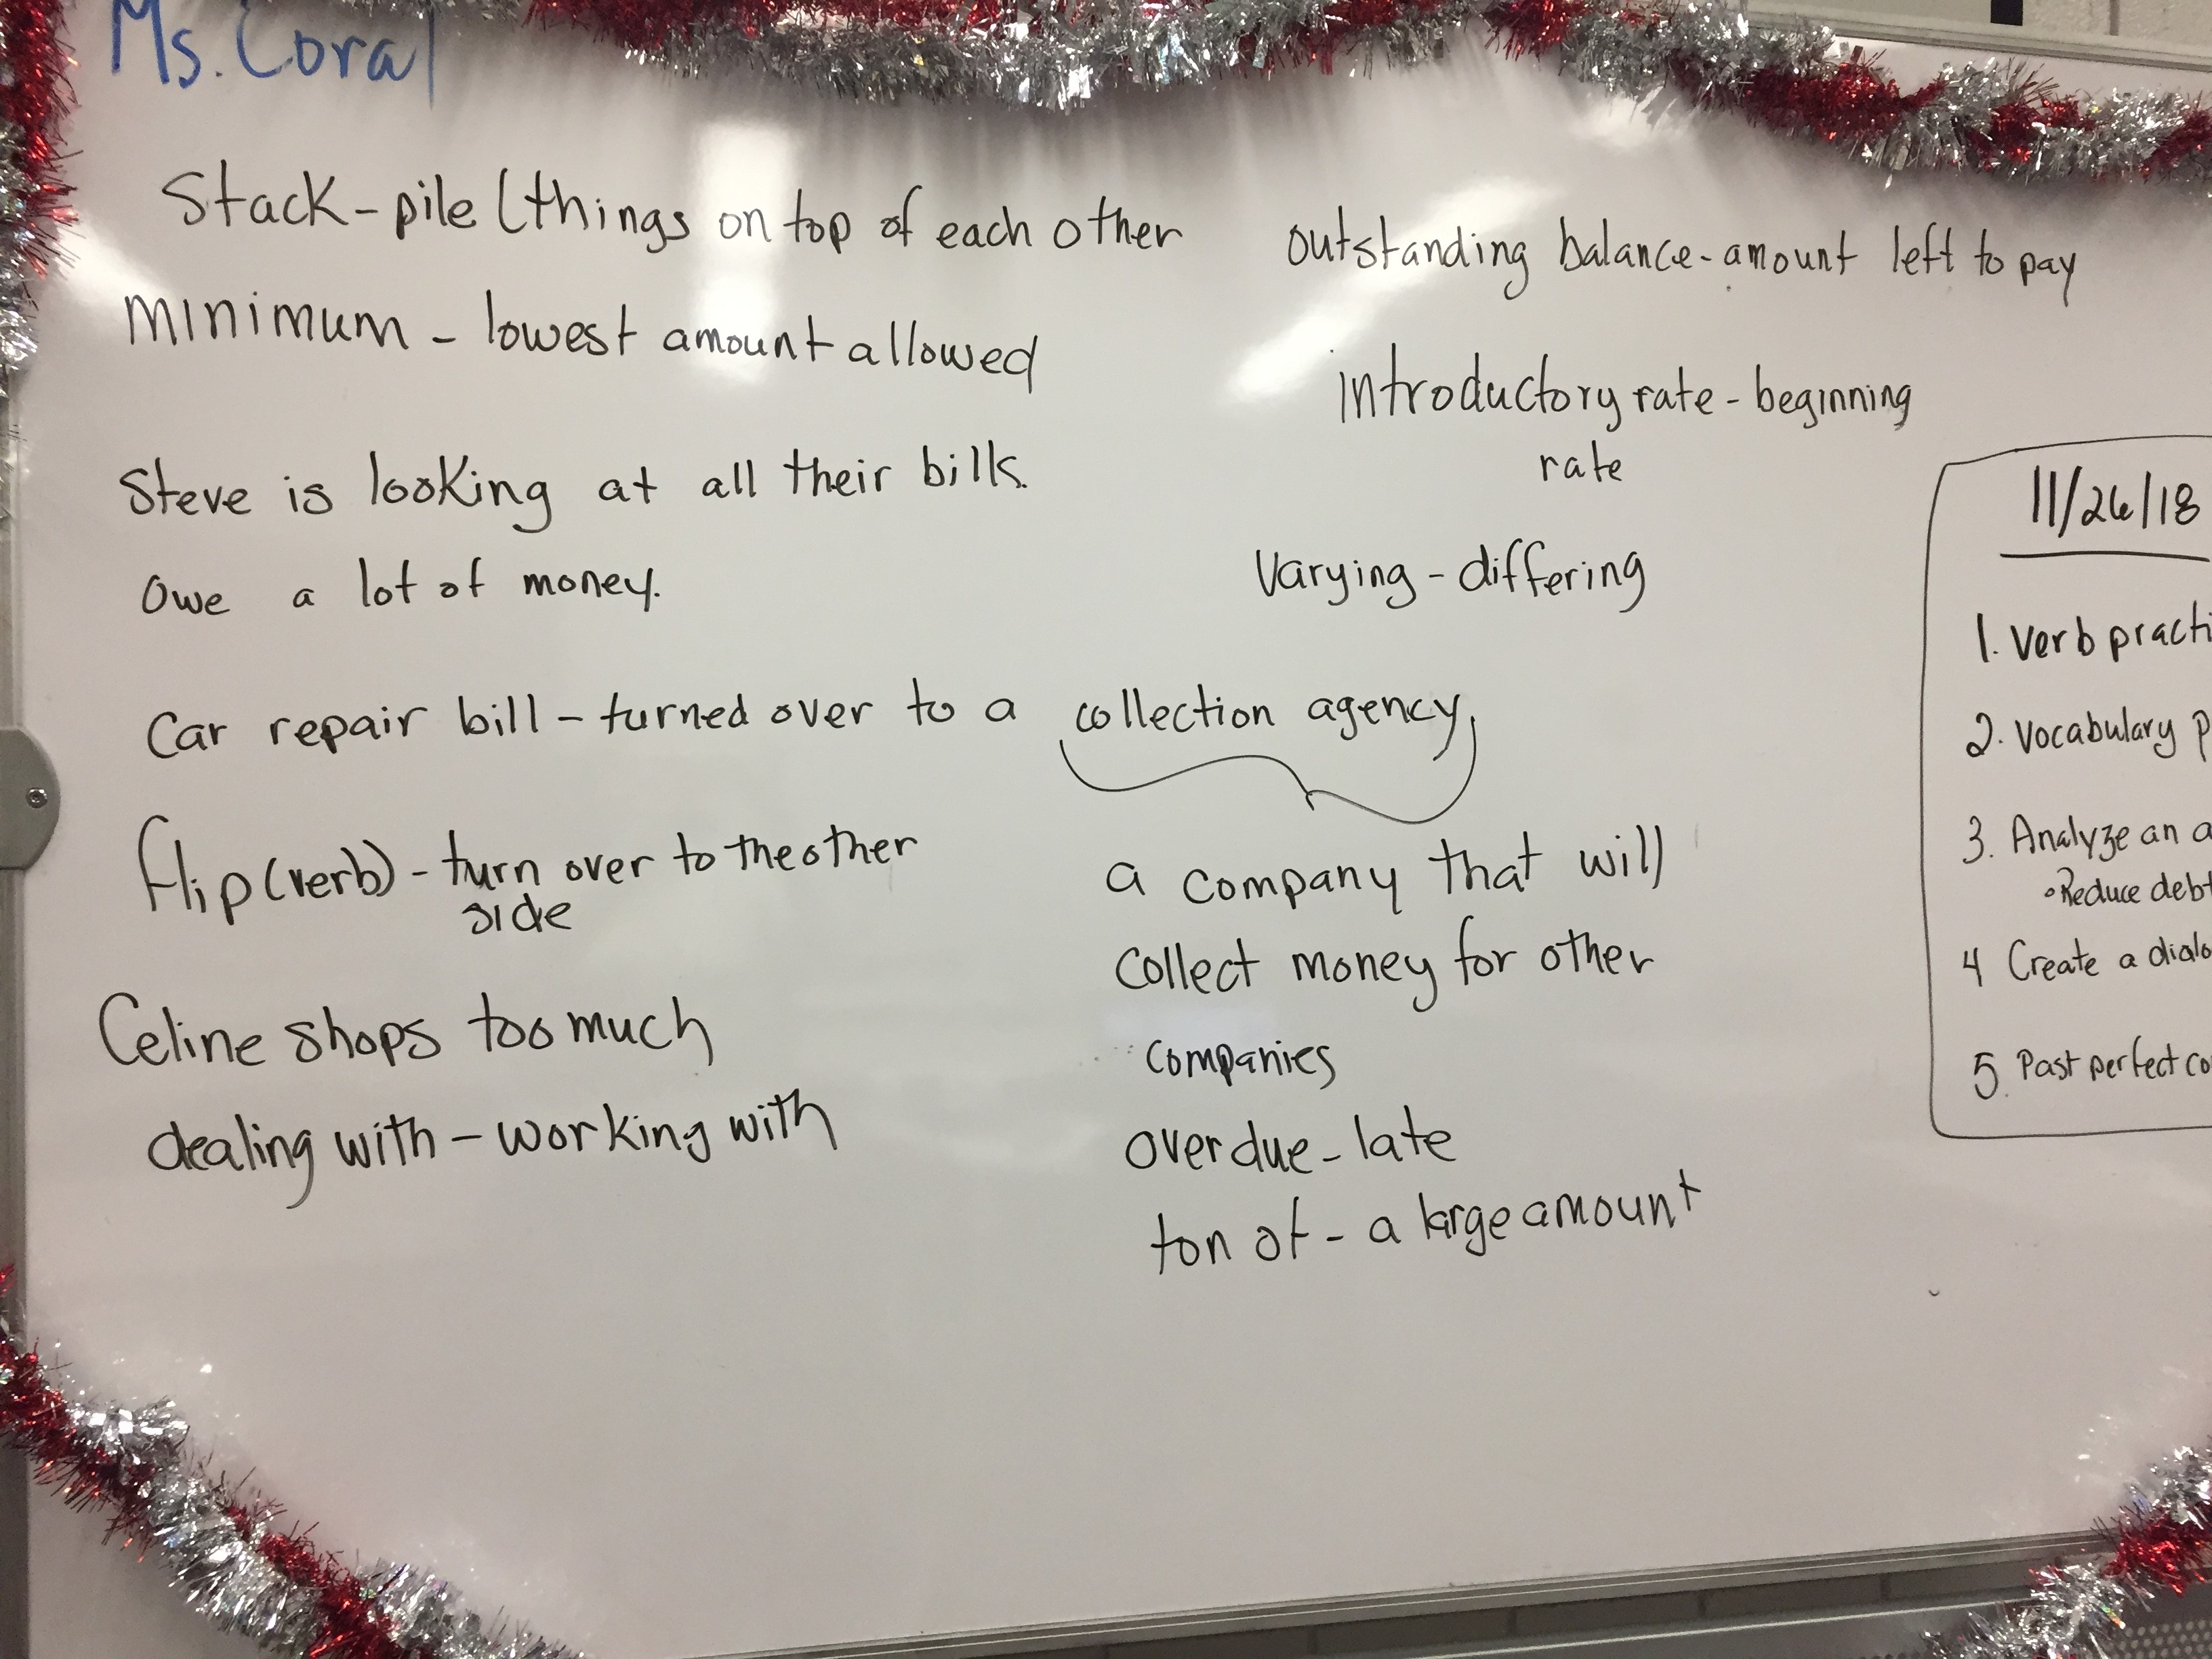 Ms. Coral
Stack - pile (things on top of each other
minimum - lowest amount allowed
Steve is looking at all their bills.
owe a lot of money.
Car repair bill - turned over to a collection agency,
flip (verb) - turn over to the other
side
Celine shops too much
dealing with - working with
outstanding balance - amount left to pay
introductory rate - beginning
rate
Varying - differing
a company that will
collect money for other
companies
overdue - late
ton of - a large amount
11/26/18
1. Verb practi
2. Vocabulary p
3. Analyze an a
• Reduce debt
4 Create a dialo
5. Past perfect co